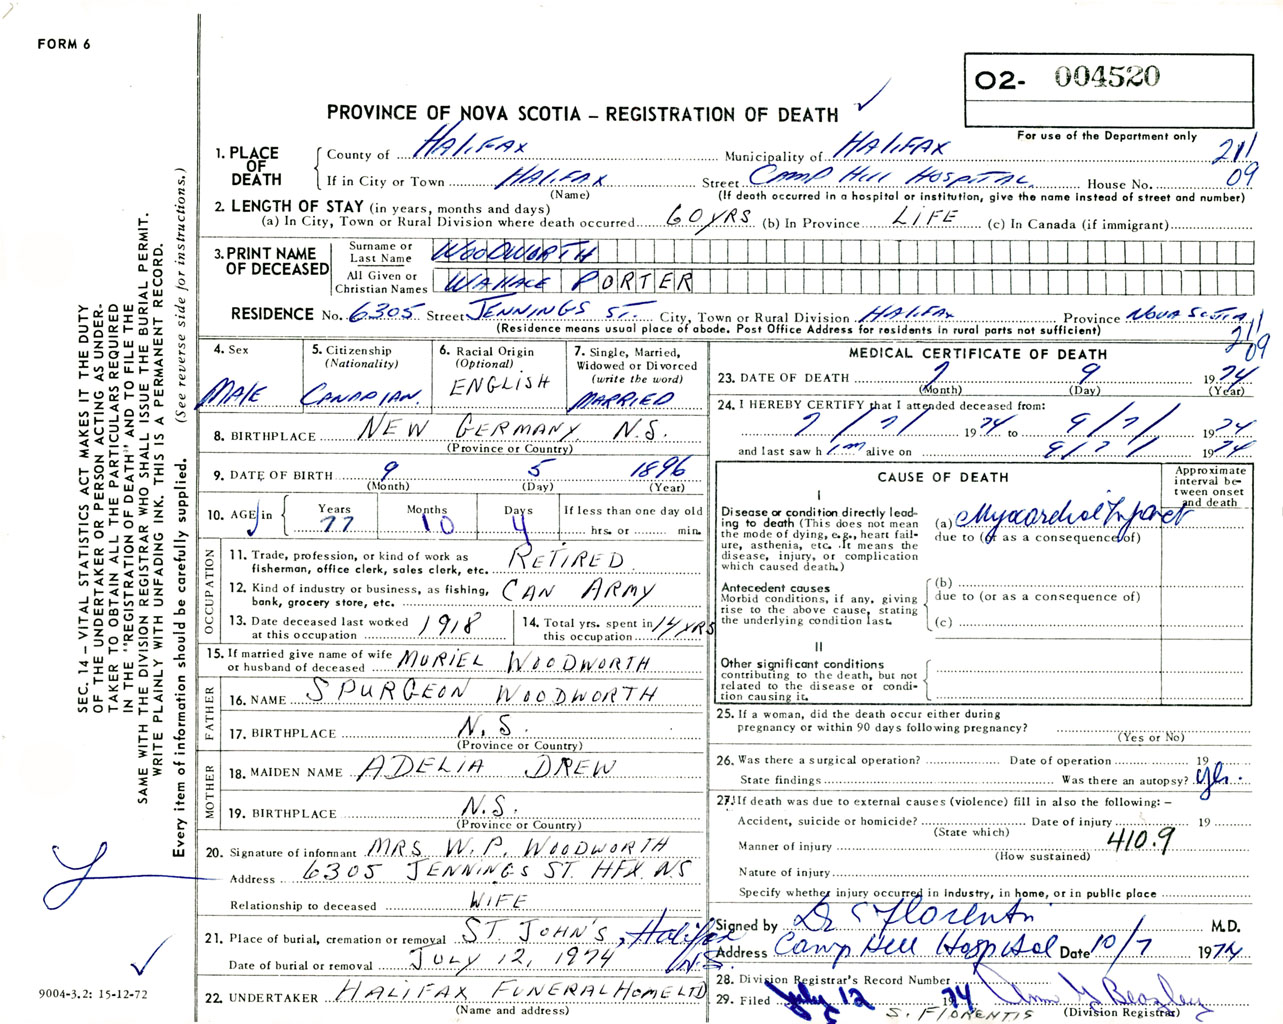 FORM 6
O2- 004520
For use of the Department only
PROVINCE OF NOVA SCOTIA – REGISTRATION OF DEATH ✓
SEC. 14 – VITAL STATISTICS ACT MAKES IT THE DUTY
OF THE UNDERTAKER OR PERSON ACTING AS UNDER-
TAKER TO OBTAIN ALL THE PARTICULARS REQUIRED
IN THE "REGISTRATION OF DEATH" AND TO FILE THE
SAME WITH THE DIVISION REGISTRAR WHO SHALL ISSUE THE BURIAL PERMIT.
WRITE PLAINLY WITH UNFADING INK. THIS IS A PERMANENT RECORD.
Every item of information should be carefully supplied. (See reverse side for instructions.)
1. PLACE OF DEATH
County of HALIFAX Municipality of HALIFAX 211
If in City or Town HALIFAX Street CAMP HILL HOSPITAL House No. 09
(Name) (If death occurred in a hospital or institution, give the name instead of street and number)
2. LENGTH OF STAY (in years, months and days)
(a) In City, Town or Rural Division where death occurred 60 YRS (b) In Province LIFE (c) In Canada (if immigrant)
3. PRINT NAME OF DECEASED
Surname or Last Name WOODWORTH
All Given or Christian Names WALLACE PORTER
RESIDENCE No. 6305 Street JENNINGS ST. City, Town or Rural Division HALIFAX Province NOVA SCOTIA
(Residence means usual place of abode. Post Office Address for residents in rural parts not sufficient)
211
09
4. Sex MALE
5. Citizenship (Nationality) CANADIAN
6. Racial Origin (Optional) ENGLISH
7. Single, Married, Widowed or Divorced (write the word) MARRIED
8. BIRTHPLACE NEW GERMANY N.S.
(Province or Country)
9. DATE OF BIRTH 9 5 1896
(Month) (Day) (Year)
10. AGE in Years 77 Months 10 Days 4 If less than one day old
hrs. or min.
OCCUPATION
11. Trade, profession, or kind of work as
fisherman, office clerk, sales clerk, etc. RETIRED
12. Kind of industry or business, as fishing,
bank, grocery store, etc. CAN ARMY
13. Date deceased last worked
at this occupation 1918
14. Total yrs. spent in
this occupation 14 YRS
15. If married give name of wife
or husband of deceased MURIEL WOODWORTH
FATHER
16. NAME SPURGEON WOODWORTH
17. BIRTHPLACE N.S.
(Province or Country)
MOTHER
18. MAIDEN NAME ADELIA DREW
19. BIRTHPLACE N.S.
(Province or Country)
20. Signature of informant MRS W.P. WOODWORTH
Address 6305 JENNINGS ST. HFX. NS
Relationship to deceased WIFE
21. Place of burial, cremation or removal ST. JOHN'S, Halifax N.S.
Date of burial or removal JULY 12, 1974
22. UNDERTAKER HALIFAX FUNERAL HOME LTD
(Name and address)
9004-3.2: 15-12-72
MEDICAL CERTIFICATE OF DEATH
23. DATE OF DEATH 7 9 1974
(Month) (Day) (Year)
24. I HEREBY CERTIFY that I attended deceased from:
7/7/ 1974 to 9/7/ 1974
and last saw him alive on 9/7/ 1974
CAUSE OF DEATH
Approximate interval between onset and death
I
Disease or condition directly lead-
ing to death (This does not mean
the mode of dying, e.g., heart fail-
ure, asthenia, etc. It means the
disease, injury, or complication
which caused death.)
(a) Myocardial Infarct
due to (or as a consequence of)
Antecedent causes
Morbid conditions, if any, giving
rise to the above cause, stating
the underlying condition last.
(b)
due to (or as a consequence of)
(c)
II
Other significant conditions
contributing to the death, but not
related to the disease or condi-
tion causing it.
25. If a woman, did the death occur either during
pregnancy or within 90 days following pregnancy?
(Yes or No)
26. Was there a surgical operation? Date of operation 19
State findings Was there an autopsy? yes.
27. If death was due to external causes (violence) fill in also the following: –
Accident, suicide or homicide? Date of injury 19
(State which)
Manner of injury 410.9
(How sustained)
Nature of injury
Specify whether injury occurred in industry, in home, or in public place
Signed by Dr S Florentis M.D.
Address Camp Hill Hospital Date 10/7 1974
28. Division Registrar's Record Number
29. Filed July 12 1974
S. FLORENTIS (Division Registrar)